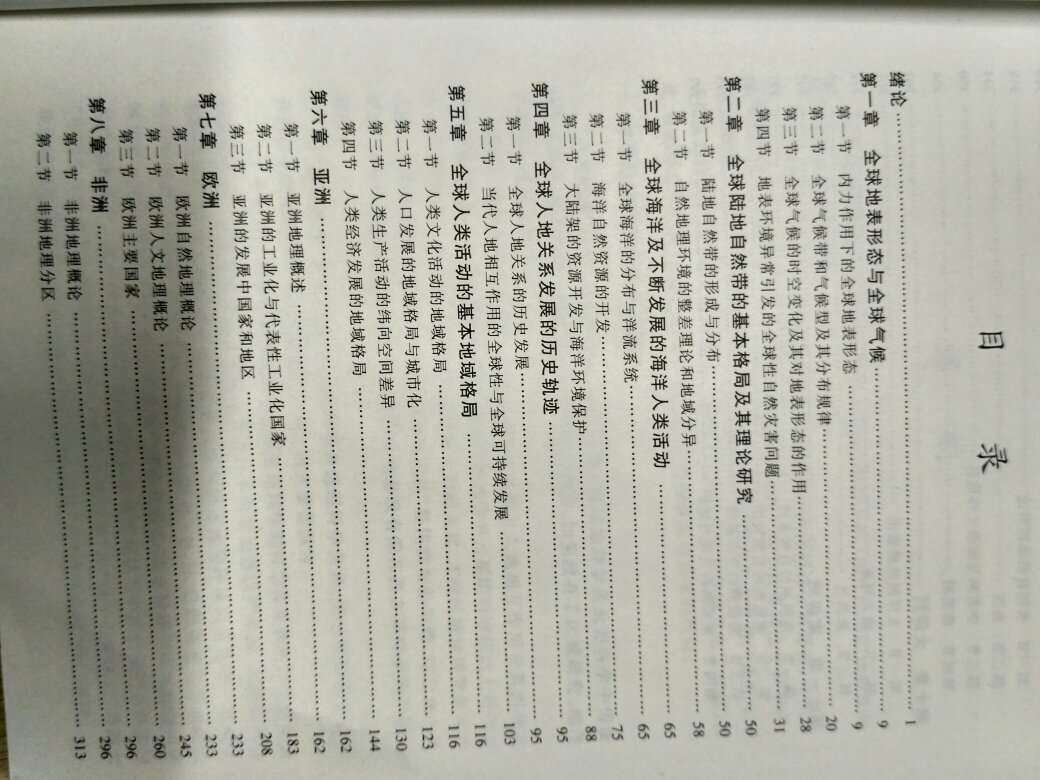 目 录
绪论 …… 1
第一章 全球地表形态与全球气候 …… 9
第一节 内力作用下的全球地表形态 …… 9
第二节 全球气候带和气候型及其分布规律 …… 20
第三节 全球气候的时空变化及其对地表形态的作用 …… 28
第四节 地表环境异常引发的全球性自然灾害问题 …… 31
第二章 全球陆地自然带的基本格局及其理论研究 …… 50
第一节 陆地自然带的形成与分布 …… 50
第二节 自然地理环境的整差理论和地域分异 …… 58
第三章 全球海洋及不断发展的海洋人类活动 …… 65
第一节 全球海洋的分布与洋流系统 …… 65
第二节 海洋自然资源的开发 …… 75
第三节 大陆架的资源开发与海洋环境保护 …… 88
第四章 全球人地关系发展的历史轨迹 …… 95
第一节 全球人地关系的历史发展 …… 95
第二节 当代人地相互作用的全球性与全球可持续发展 …… 103
第五章 全球人类活动的基本地域格局 …… 116
第一节 人类文化活动的地域格局 …… 116
第二节 人口发展的地域格局与城市化 …… 123
第三节 人类生产活动的纬向空间差异 …… 130
第四节 人类经济发展的地域格局 …… 144
第六章 亚洲 …… 162
第一节 亚洲地理概述 …… 162
第二节 亚洲的工业化与代表性工业化国家 …… 183
第三节 亚洲的发展中国家和地区 …… 208
第七章 欧洲 …… 233
第一节 欧洲自然地理概论 …… 233
第二节 欧洲人文地理概论 …… 245
第三节 欧洲主要国家 …… 260
第八章 非洲 …… 296
第一节 非洲地理概论 …… 296
第二节 非洲地理分区 …… 313